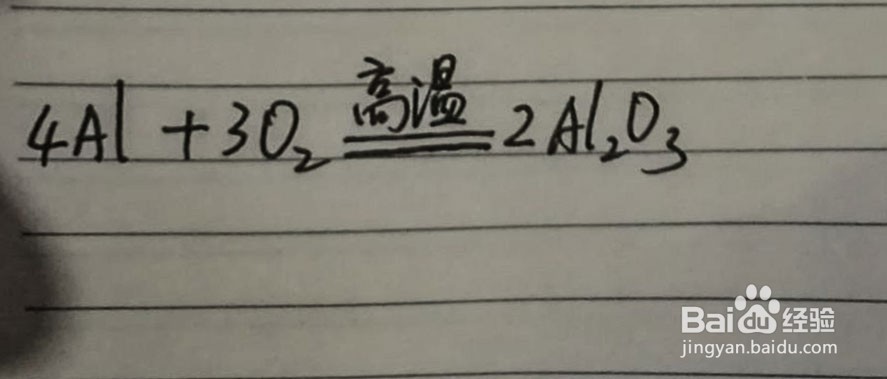 高温
4Al + 3O₂ ══ 2Al₂O₃
Bai du 经验
jingyan.baidu.com